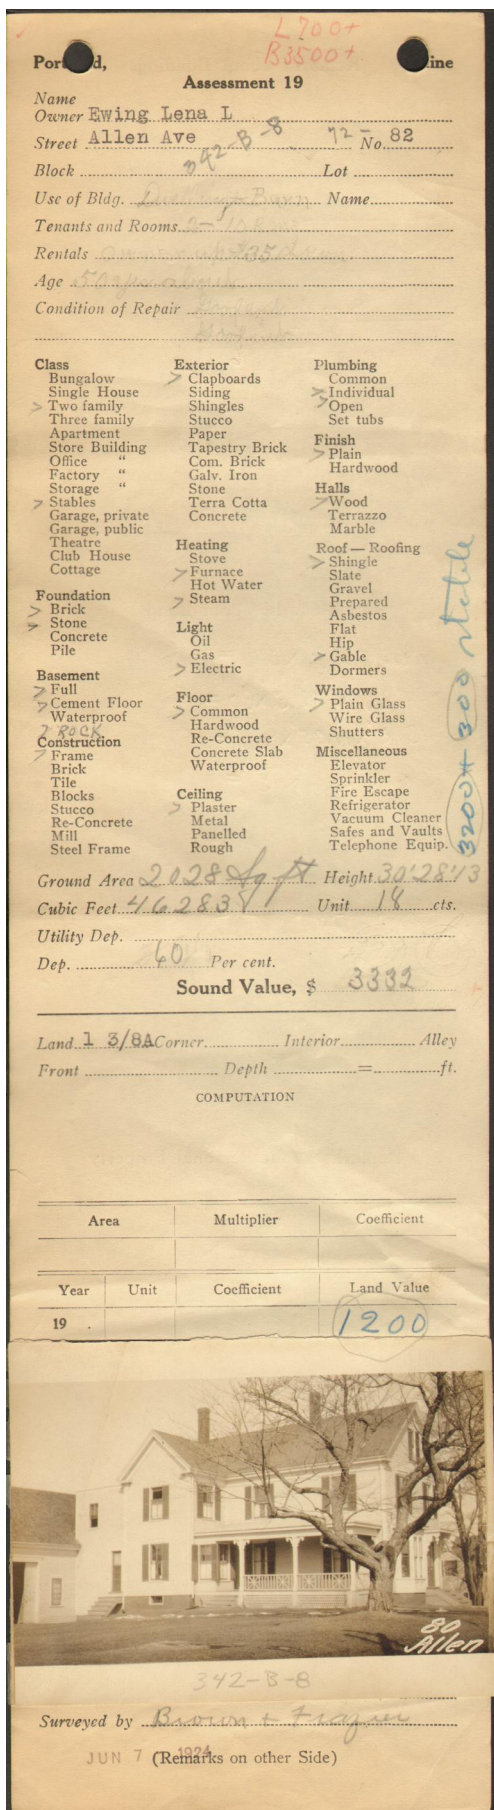 L 700+
B 3500+
Portland, Maine
Assessment 19
Name
Owner Ewing Lena L
Street Allen Ave 72- No. 82
342-B-8
Block Lot
Use of Bldg. Dwelling & Barn Name
Tenants and Rooms
Rentals
Age 50 years
Condition of Repair
Class
Bungalow
Single House
> Two family
Three family
Apartment
Store Building
Office "
Factory "
Storage "
> Stables
Garage, private
Garage, public
Theatre
Club House
Cottage
Foundation
> Brick
> Stone
Concrete
Pile
Basement
> Full
> Cement Floor
Waterproof
ROCK
Construction
> Frame
Brick
Tile
Blocks
Stucco
Re-Concrete
Mill
Steel Frame
Exterior
> Clapboards
Siding
Shingles
Stucco
Paper
Tapestry Brick
Com. Brick
Galv. Iron
Stone
Terra Cotta
Concrete
Heating
Stove
> Furnace
Hot Water
> Steam
Light
Oil
Gas
> Electric
Floor
> Common
Hardwood
Re-Concrete
Concrete Slab
Waterproof
Ceiling
> Plaster
Metal
Panelled
Rough
Plumbing
Common
> Individual
> Open
Set tubs
Finish
> Plain
Hardwood
Halls
> Wood
Terrazzo
Marble
Roof — Roofing
> Shingle
Slate
Gravel
Prepared
Asbestos
Flat
Hip
> Gable
Dormers
Windows
> Plain Glass
Wire Glass
Shutters
Miscellaneous
Elevator
Sprinkler
Fire Escape
Refrigerator
Vacuum Cleaner
Safes and Vaults
Telephone Equip.
3200H - 300 stable
Ground Area 2028 Sq ft Height 30'28'13
Cubic Feet 46283 Unit 18 cts.
Utility Dep.
Dep. 60 Per cent.
Sound Value, $ 3332
Land 1 3/8A Corner Interior Alley
Front Depth = ft.
COMPUTATION
Area Multiplier Coefficient
Year Unit Coefficient Land Value
19 1200
80
Allen
342-B-8
Surveyed by Brown & Frazier
JUN 7 1924 (Remarks on other Side)